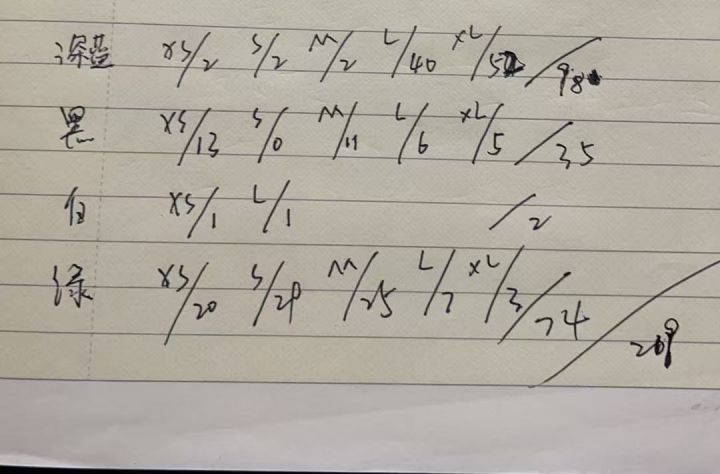 深蓝 XS/2 S/2 M/2 L/40 XL/52 /98
黑 XS/13 S/0 M/11 L/6 XL/5 /35
白 XS/1 L/1 /2
绿 XS/20 S/29 M/25 L/7 XL/3 /74
/209